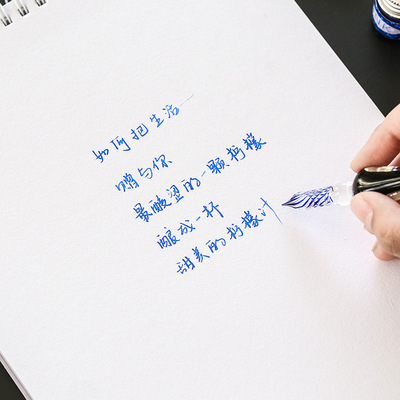 如何把生活
赠与你
最酸涩的一颗柠檬
酿成一杯
甜美的柠檬汁